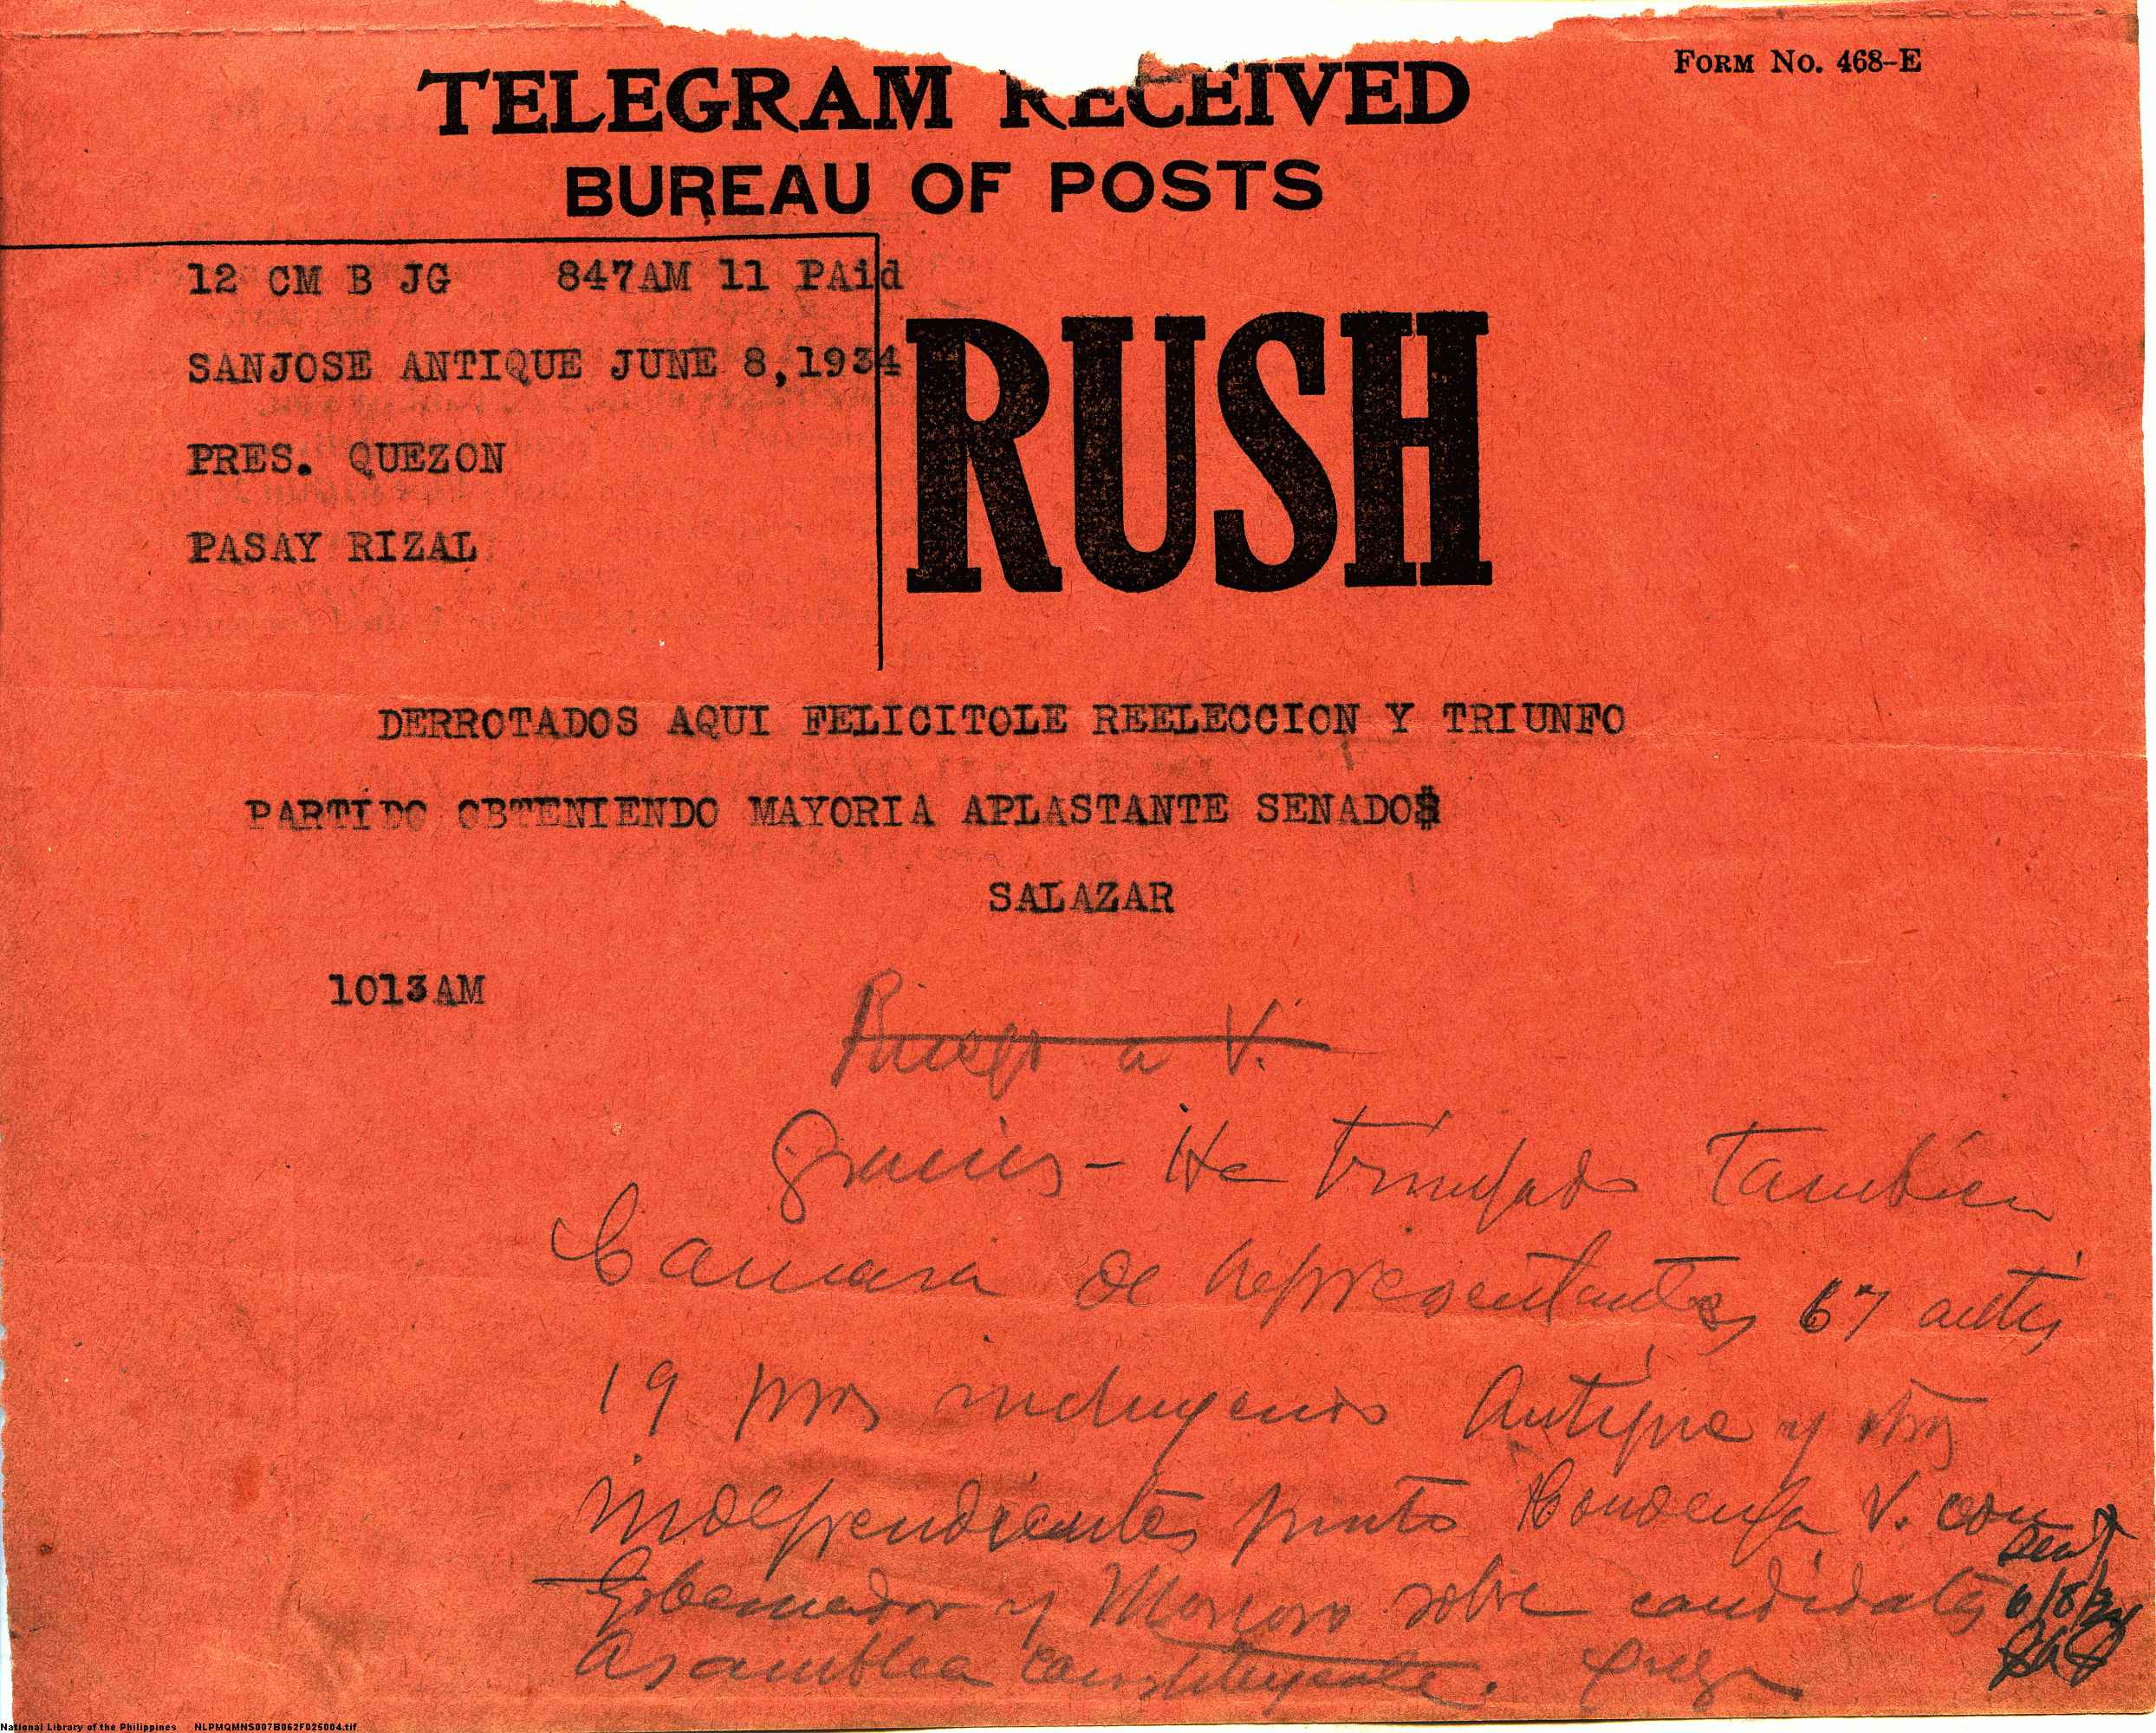 FORM NO. 468-E
TELEGRAM RECEIVED
BUREAU OF POSTS
12 CM B JG 847AM 11 PAid
SANJOSE ANTIQUE JUNE 8,1934
PRES. QUEZON
PASAY RIZAL
RUSH
DERROTADOS AQUI FELICITOLE REELECCION Y TRIUNFO
PARTIDO OBTENIENDO MAYORIA APLASTANTE SENADO
SALAZAR
1013AM
Ruego a V.
Gracias - He triunfado tambien
Camara de representantes 67 antis
19 pros incluyendo Antique y otros
independientes punto Condenga V. con
Gobernador y Moscoso sobre candidatos
Asamblea constituyente. Quezon
Sent
6/8/34
National Library of the Philippines NLPMQMNS007B062F025004.tif